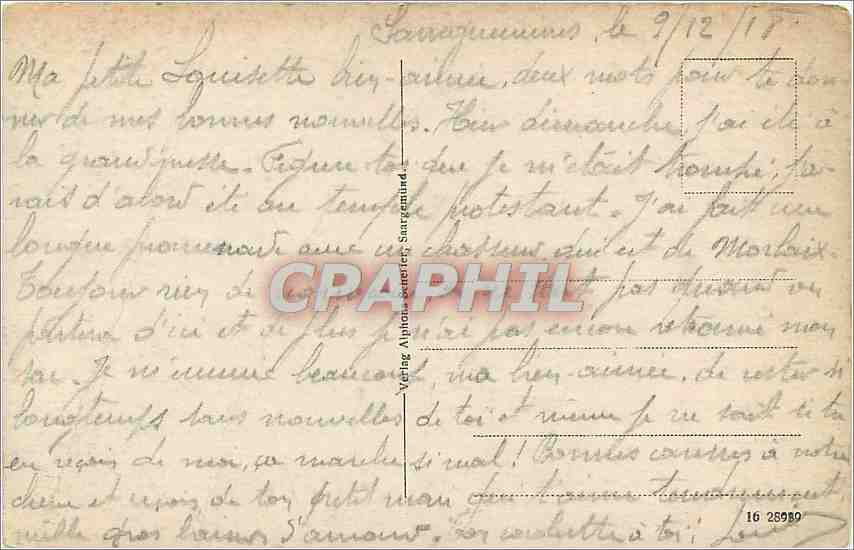 Sarreguemines, le 9/12/18
Ma petite Louisette bien-aimée, deux mots pour te don-
ner de mes bonnes nouvelles. Hier dimanche j'ai été à
la grand'messe. Figure toi que je m'étais trompé; j'a-
vais d'abord été au temple protestant. J'ai fait une
longue promenade avec un chasseur qui est de Morlaix.
Toujours rien de nouveau sait pas quand on
partira d'ici et de plus je n'ai pas encore retrouvé mon
sac. Je m'ennuie beaucoup, ma bien-aimée, de rester si
longtemps sans nouvelles de toi et même je ne sais si tu
en reçois de moi, ça marche si mal! Bonnes caresses à notre
chère et reçois de ton petit mari qui t'aime tendrement
mille gros baisers d'amour. Ton à toi; Louis
CPAPHIL
Verlag Alphons Scheffer, Saargemünd.
16 28989